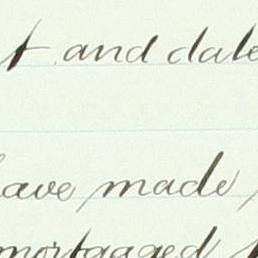 t and date
have made
mortgaged